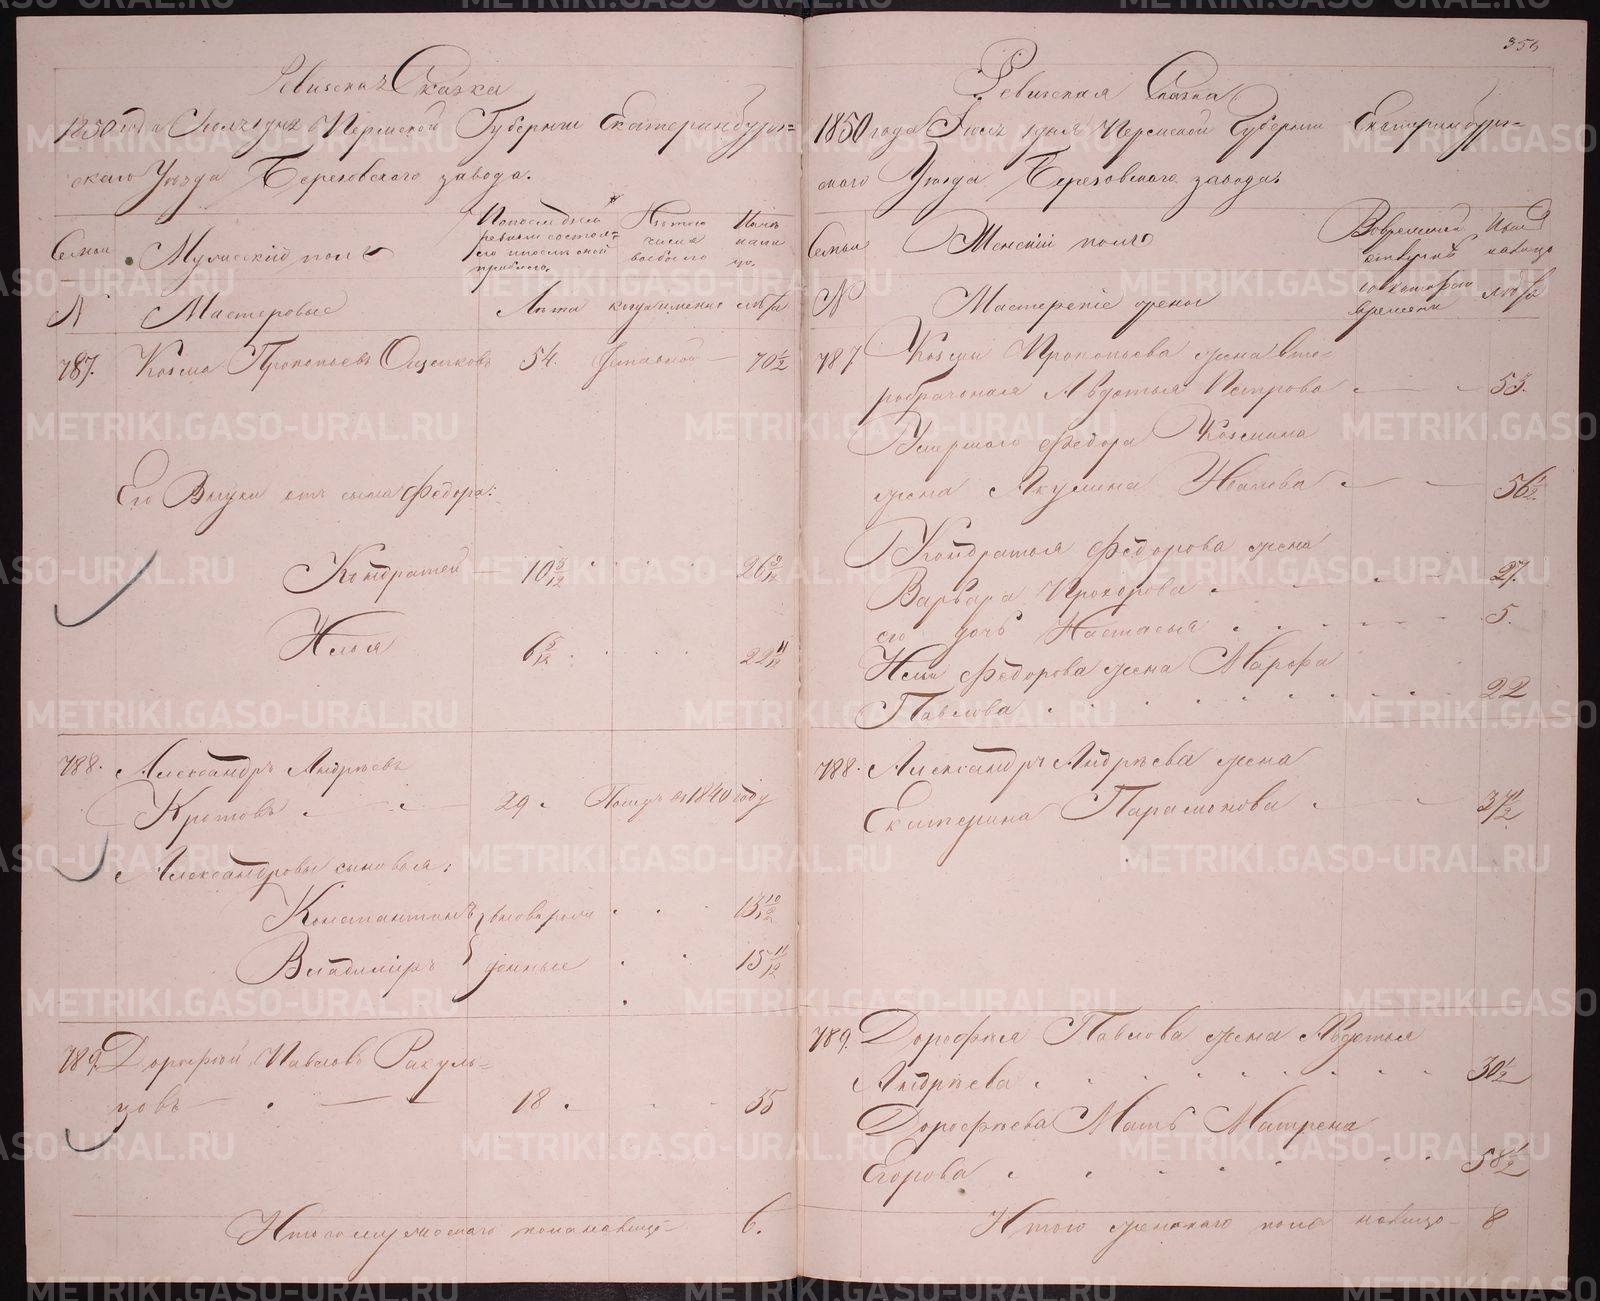 Ревизская Сказка
1850 года Июля дня Пермской Губернии Екатеринбург=
скаго Уезда Березовского завода.
Семьи
Мужеский полъ
По последней
ревизии состоя=
ло и после оной
прибыло.
Из того
числа
выбыло
Ныне
нали
цо.
№
Мастеровые
Лета
когда именно
лета
787. Козма Прокопьевъ 54. 70 1/2
Его Внуки отъ сына Федора:
Кондратей 10 5/12 26
Илья 6 5/12 22 11/12
788. Александръ Андреевъ
Кротовъ 29 въ 1840 году
Александровы сыновья:
Константинъ 13 10/12
Владимиръ 15 11/12
789. Дорофей Павловъ Ракуль=
цовъ 18 35
Итого мужескаго пола налицо 6.
Ревизская Сказка
1850 года Июля дня Пермской Губернии Екатеринбург=
скаго Уезда Березовскаго завода.
Семьи
Женский полъ
Во временной
отлучке
Ныне
налицо
№
Мастерские жены
съ котораго
времени
лета
787 Козмы Прокопьева жена вто=
робрачоная Авдотья Петрова 53.
Умершаго Федора Козмина
жена Акулина Иванова 56 1/2
Кондратья Федорова жена
Варвара Прохорова 27.
его дочь Настасья 5.
Ильи Федорова жена Марфа
Павлова 22
788. Александра Андреева жена
Екатерина Парамонова 37 1/2
789. Дорофея Павлова жена Авдотья
Андреева 30 1/2
Дорофеева Мать Матрена
Егорова 58 1/2
Итого женскаго пола налицо 8
METRIKI.GASO-URAL.RU